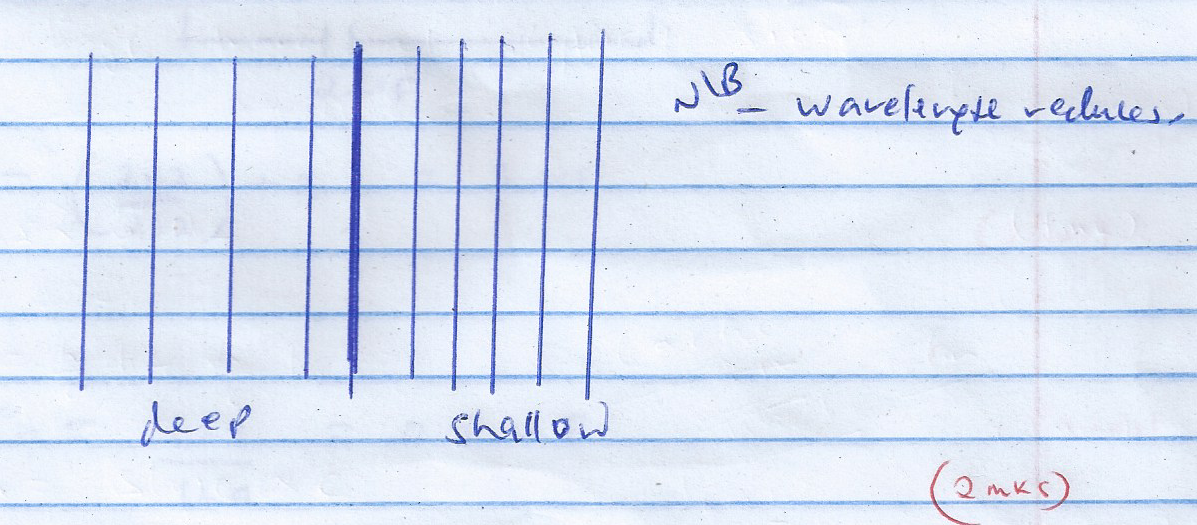 N\B - wavelength reduces.
deep shallow
(2 mks)